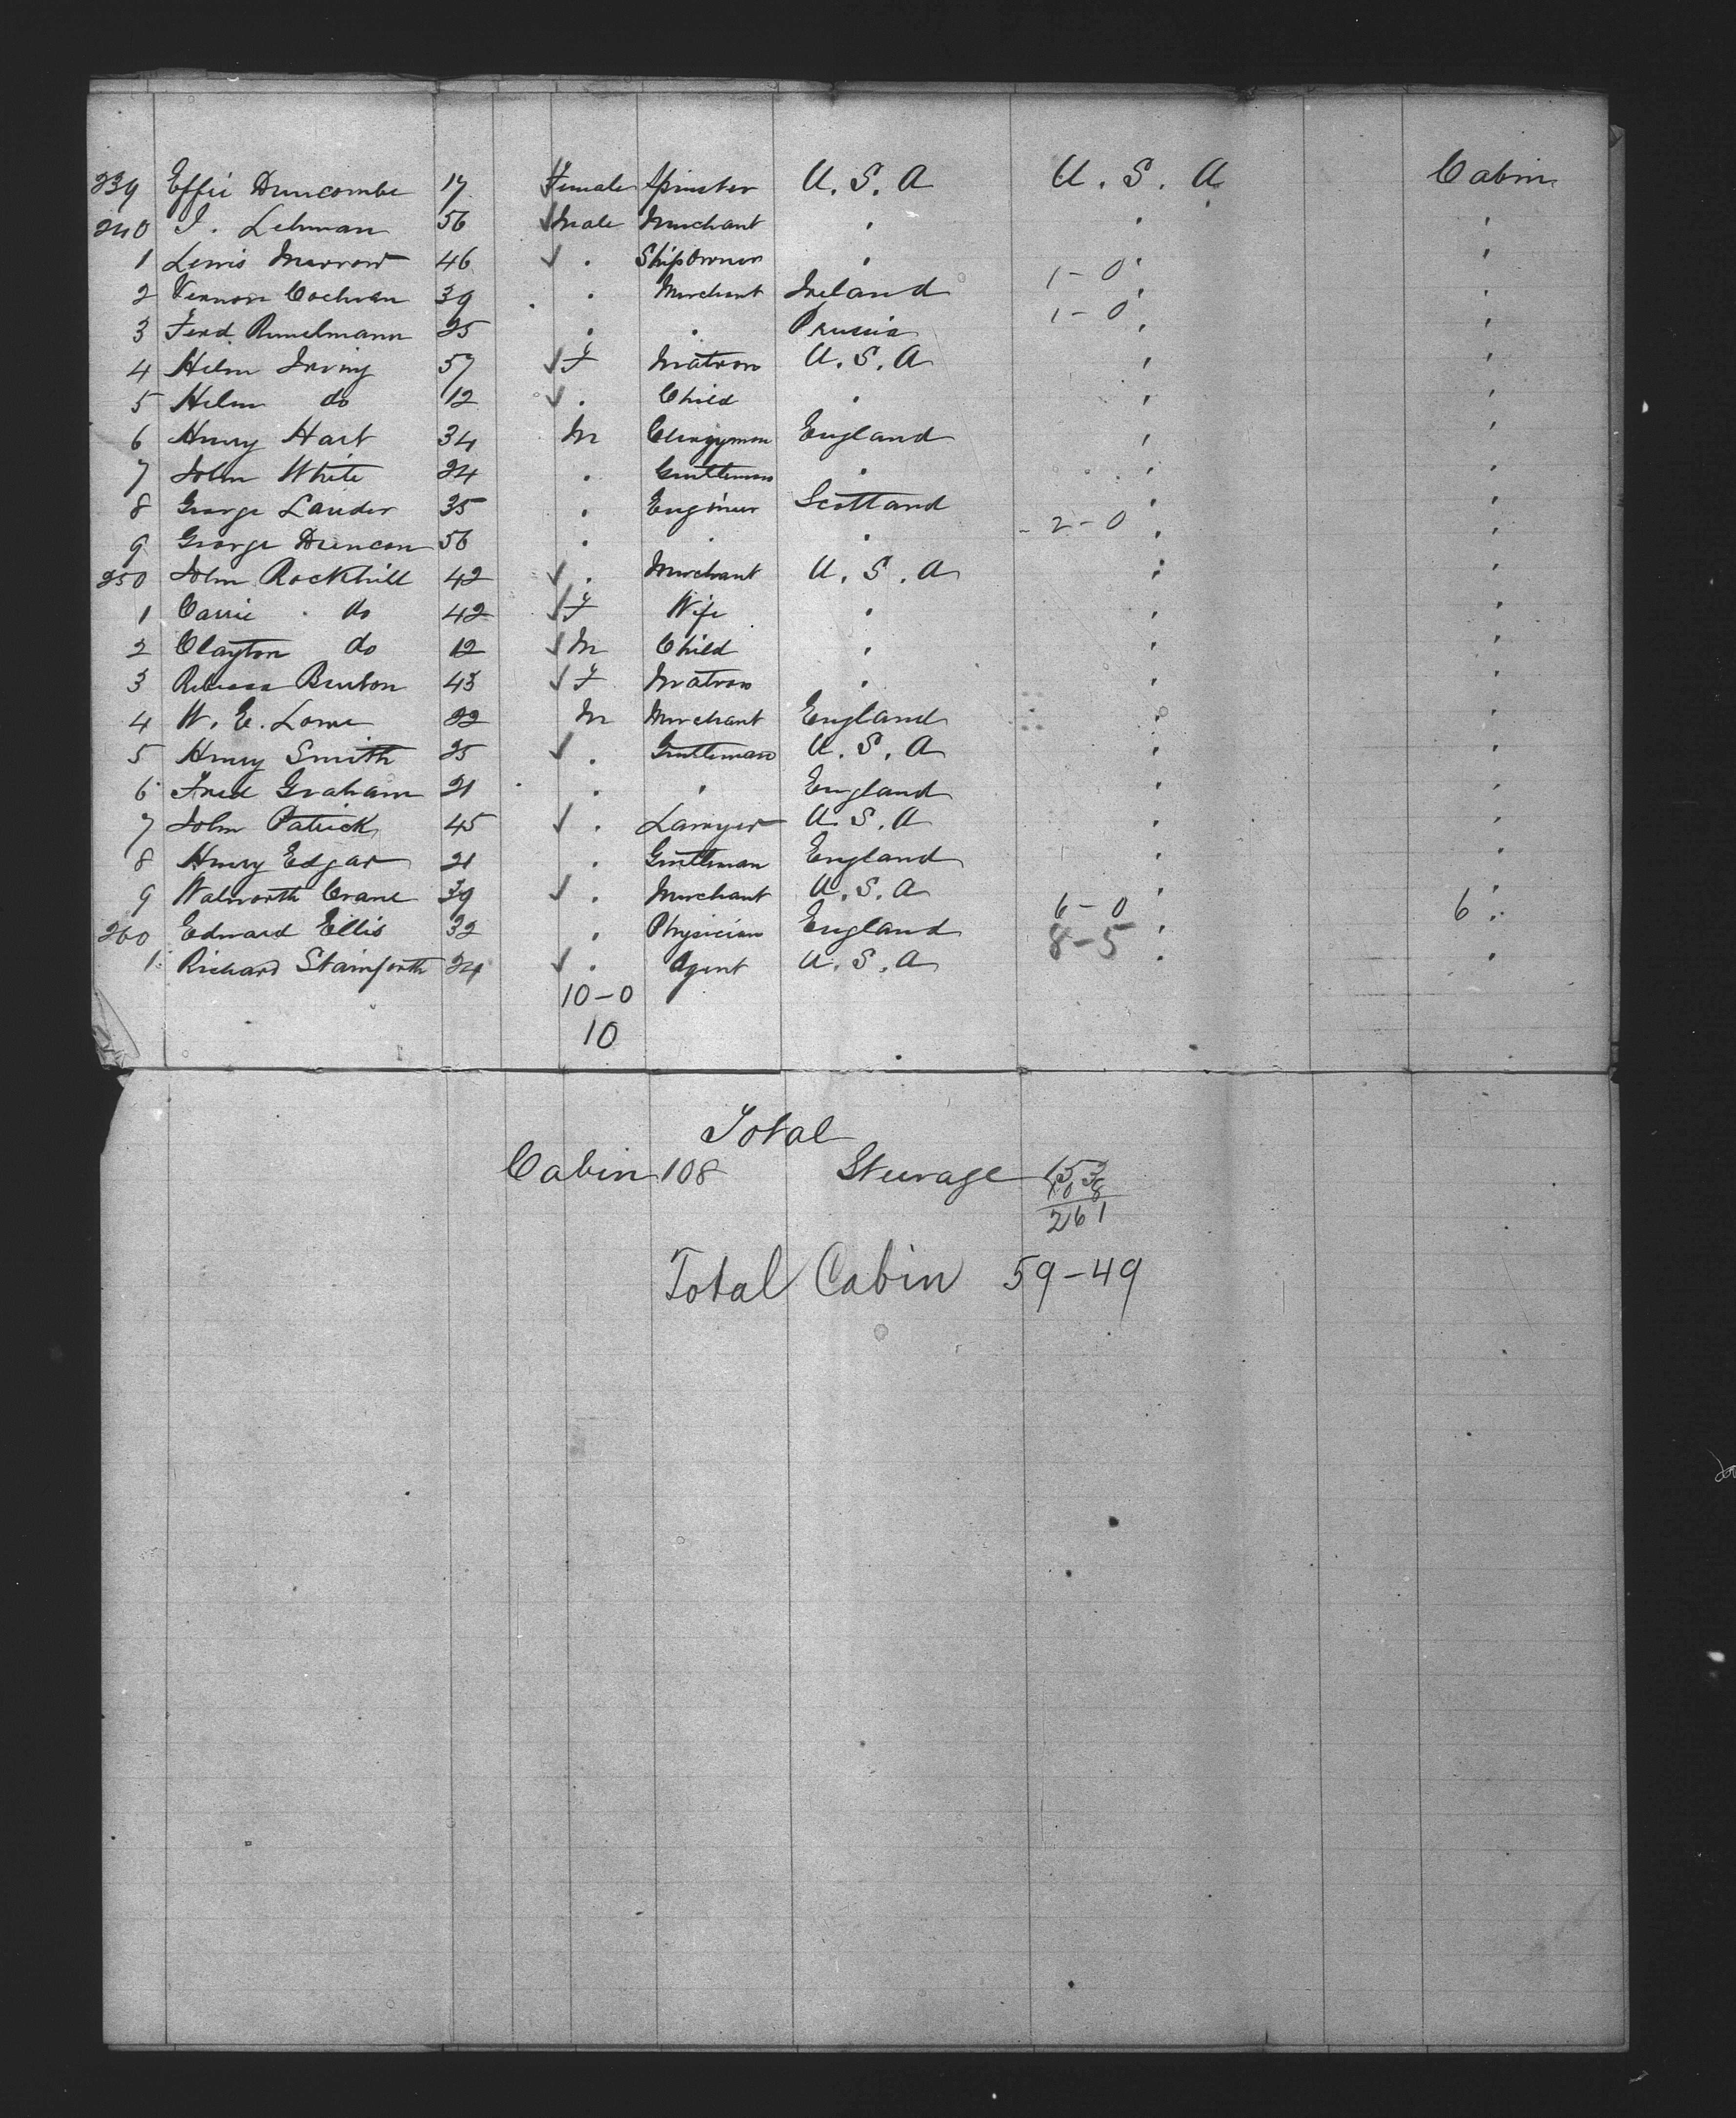 239 Effie Duncombe 17 Female Spinster U. S. A U. S. A Cabin
240 I. Lehman 56 ✓ Male Merchant " " "
1 Lewis Morrow 46 ✓ " Shipowner " " "
2 Vernon Cochran 39 " Merchant Ireland 1-0 " "
3 Ferd. 25 " " Prussia 1-0 " "
4 Helen Irving 57 ✓ F Matron U. S. A " "
5 Helen do 12 ✓ " Child " " "
6 Henry Hart 34 M Clergyman England " "
7 John White 24 " Gentleman " " "
8 George Lauder 35 " Engineer Scotland " "
9 George Duncan 56 " " " -2-0 " "
250 John Rockhill 42 ✓ " Merchant U. S. A " "
1 Carrie do 42 ✓ F Wife " " "
2 Clayton do 12 ✓ M Child " " "
3 Rebecca Burton 43 ✓ F Matron " " "
4 W. E. Lowe 22 M Merchant England " "
5 Henry Smith 25 ✓ " Gentleman U. S. A " "
6 Fred Graham 21 " " England " "
7 John Patrick 45 ✓ " Lawyer U. S. A " "
8 Henry Edgar 21 " Gentleman England " "
9 Walworth Crane 39 ✓ " Merchant U. S. A " "
260 Edward Ellis 32 " Physician England 6-0 " 6 "
1 Richard Stainforth 24 ✓ " Agent U. S. A 8-5 " "
10-0
10
Total
Cabin 108 Steerage 153
108
261
Total Cabin 59-49